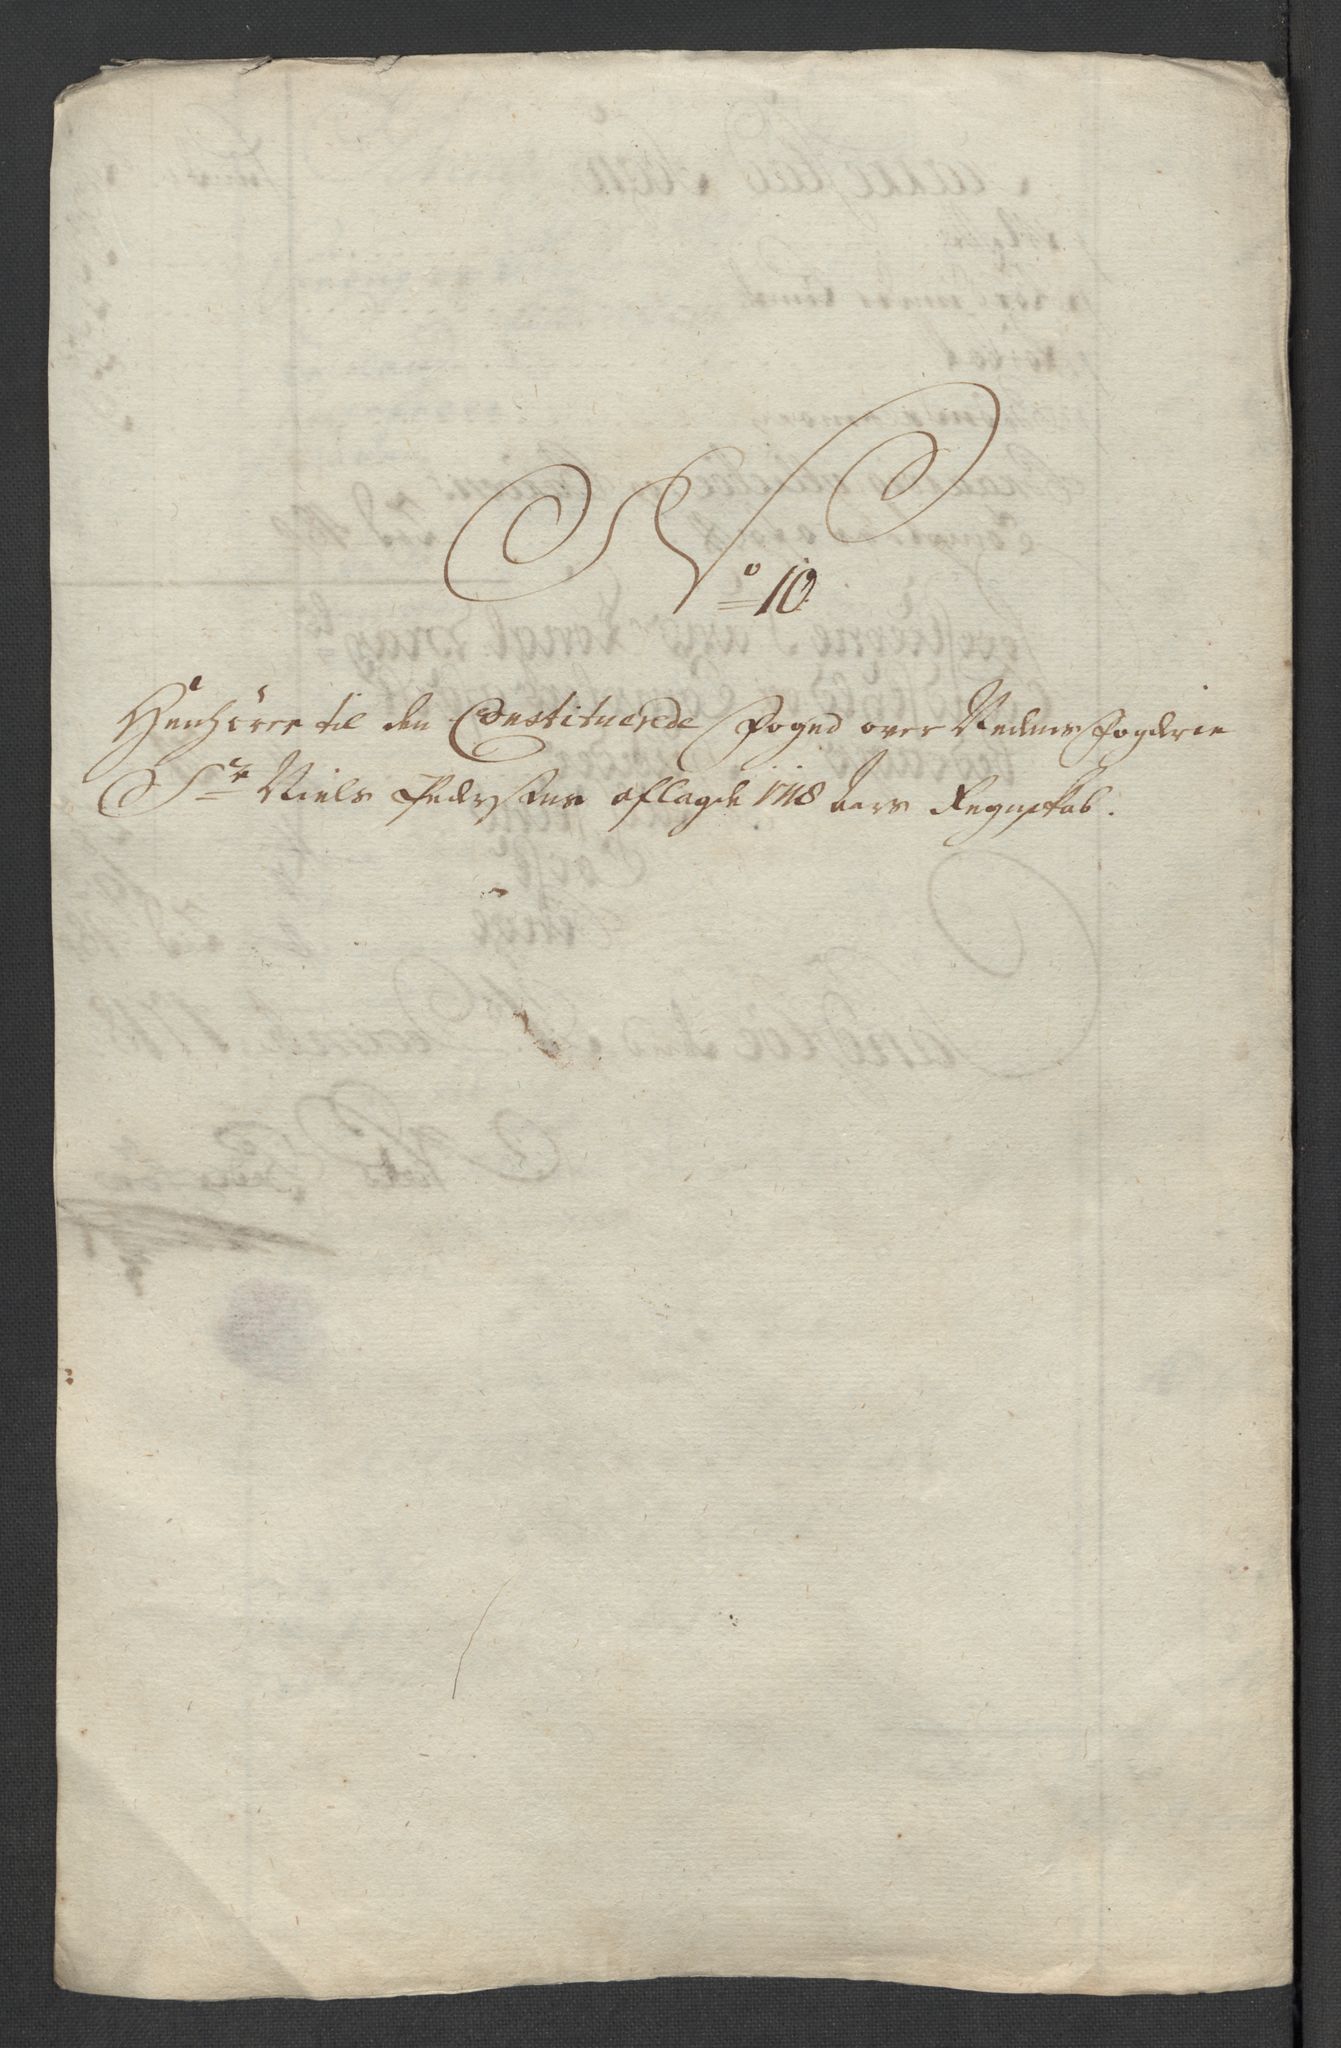 No 10
Henhörer til den Constituerede Foged over Nedenes Fogderie
Sr Niels Pedersens aflagde 1718 Aars Regnskab.